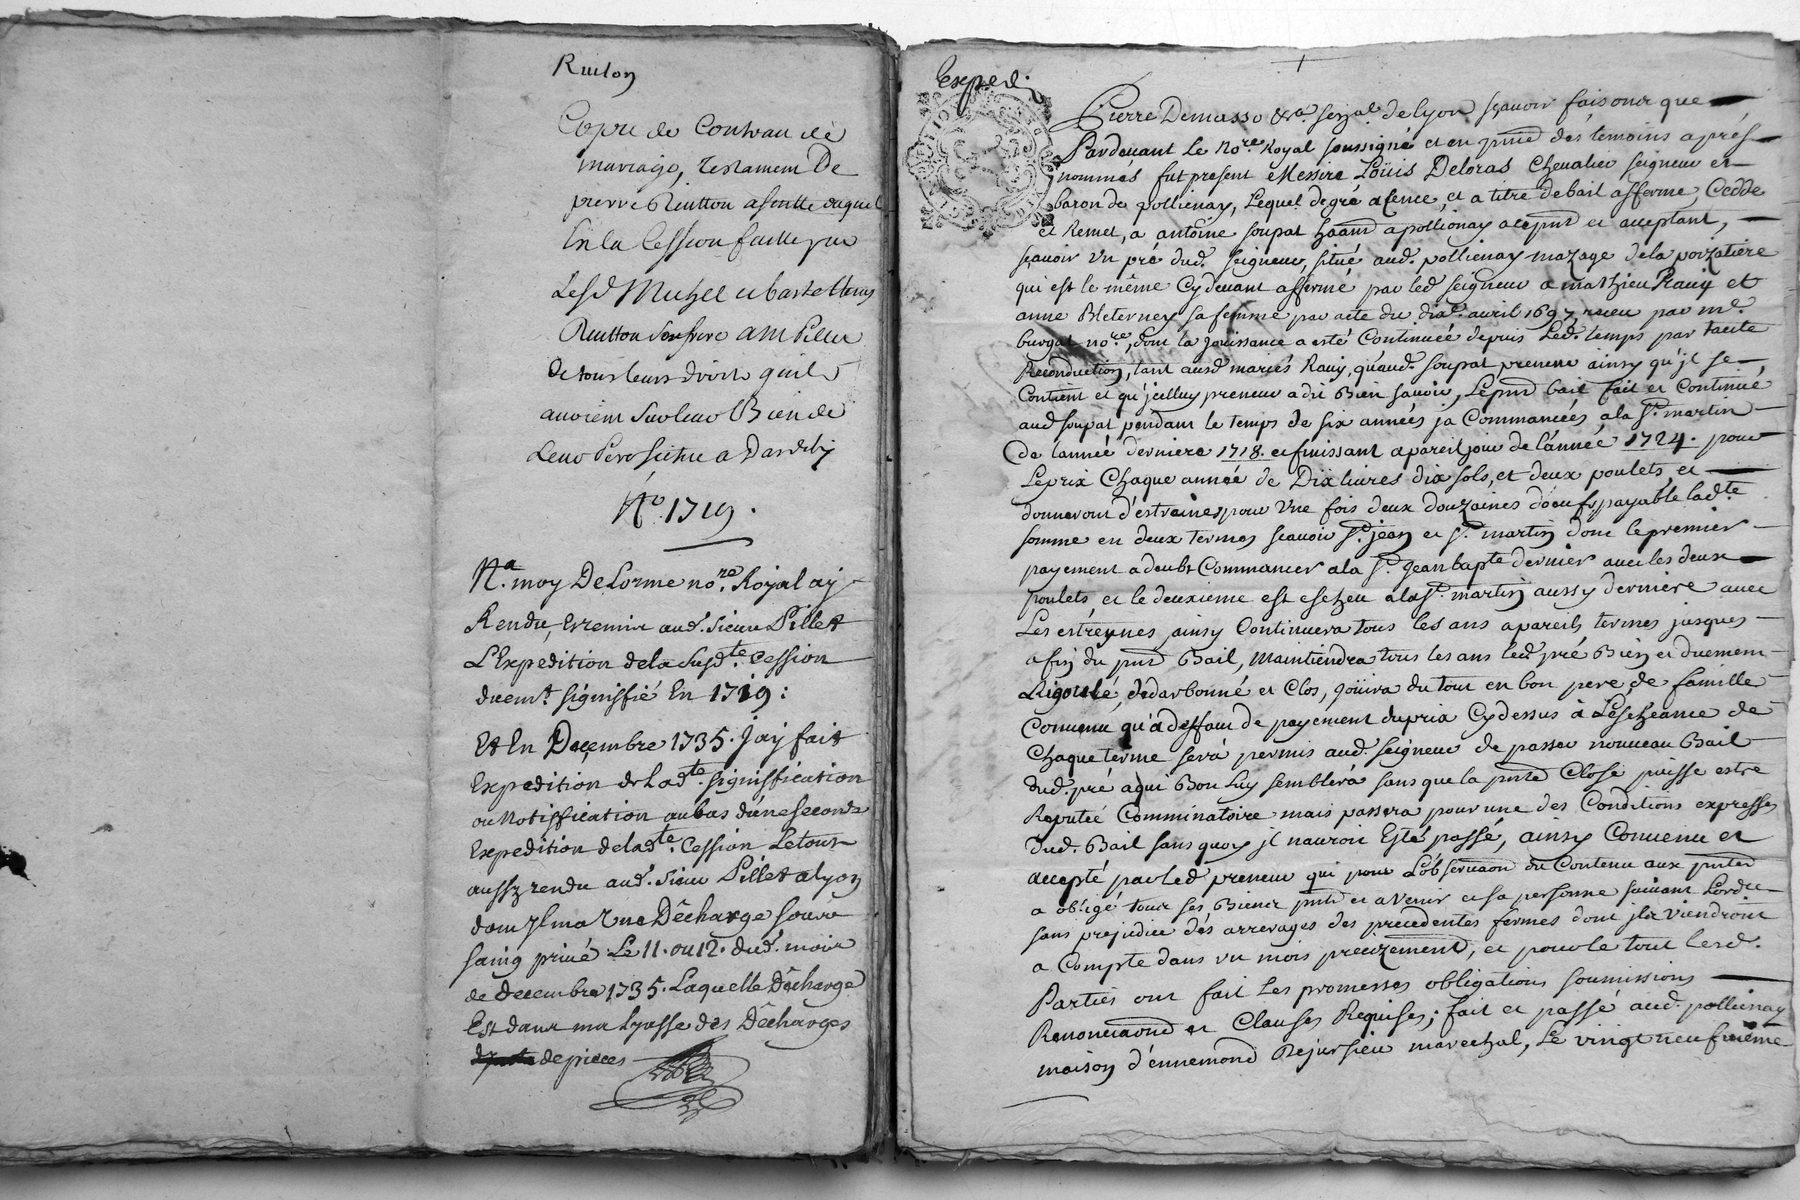 Ruiton
Copie de Contrau de
mariage, Testament De
pierre Ruitton asuitte duquel
En la Cession faitte par
Lesd Michel et barthellemy
Ruitton son frere a Mr Pillet
De tous leurs droits quils
avoient sur leur Bien de
Leur Pere sictue a Dardilly
No. 1719.
Na. moy DeLorme nore. Royal ay
Rendu, Et remis aud. sieur Pillet
L'Expedition de la susdte. Cession
duemt. signiffié En 1719:
Et En Decembre 1735. J'ay fait
Expedition de Ladte. signiffication
ou Notiffication au bas d'une seconde
Expedition deladte. Cession Letout
aussy rendu aud. sieur Pillet a lyon
dont Il ma Une Décharge soubs
saing privé Le 11. ou 12. dud. mois
de decembre 1735. Laquelle Décharge
Est dans ma lyasse des Décharges
de pieces
Expedi.
Pierre Demasso senal. de lyon sçavoir faisons que
Pardevant Le Nore. Royal soussigné et en pnce des temoins aprés
nommes fut present Messire Loüis Deloras Chevalier seigneur et
baron de pollienay, Lequel de gré a ferme et a titre de bail afferme, Cedde
et Remet, a antoine soupat a pollionay acpnt et acceptant,
sçavoir un pré dud. seigneur, situé aud. pollienay mazage dela poizatiere
qui est le même Cydevant affermé par led seigneur a mathieu Raviy et
anne Meterney sa femme par acte du dixe. avril 1697 receu par me.
burgat nore, dont la jouissance a esté Continuée depuis Led. temps par tacite
Reconduction, tant ausd mariés Raviy, qu'aud. soupat preneur ainsy qu'jl se
Contient et qu'jcelluy preneur a dit Bien savoir, Le pnt bail fait et Continué
aud soupat pendant le temps de six années ja Commancées a la st. martin
De lannée derniere 1718. et finissant a pareil jour de lannée 1724. pour
Leprix Chaque année de Dix livres dix sols, et deux poulets, et
donneront d'estraines pour Une fois deux douzaines d'oeufs, payable ladte
somme en deux termes scavoir st. jean et st. martin dont le premier
payement a deubt Commancer a la st. Jean bapte dernier avec les deux
poulets, et le deuxieme est escheu a la st. martin aussy derniere avec
Les estreynes, ainsy Continuera tous les ans a pareils termes jusques
a fin du pnt Bail, Maintiendra tous les ans led pré Bien et duement
Rigoulé, dedarbonné et Clos, joüira du tout en bon pere de famille
Convenu qu'a deffaut de payement du prix Cydessus à Lescheance de
Chaque terme sera permis aud. seigneur de passer nouveau Bail
dud. pré a qui Bon Luy semblera sans que la pnte Close puisse estre
Reputée Comminatoire mais passera pour une des Conditions expresses
dud. Bail sans quoy jl nauroit Esté passé, ainsy Convenu et
accepté par led preneur qui pour L'observaon du Contenu aux pntes
a obligé tous ses Biens pnts et a venir et sa personne suivant Lordce
sans prejudice dès arrerages des precedentes fermes dont jls viendront
a Compte dans un mois precizement, et pour le tout lesd.
Parties ont fait Les promesses obligations soumissions
Renonciaons et Clauses Requises; fait et passé aud. pollienay
maison d'ennemond Rejursieu marechal, Le vingt neufvieme